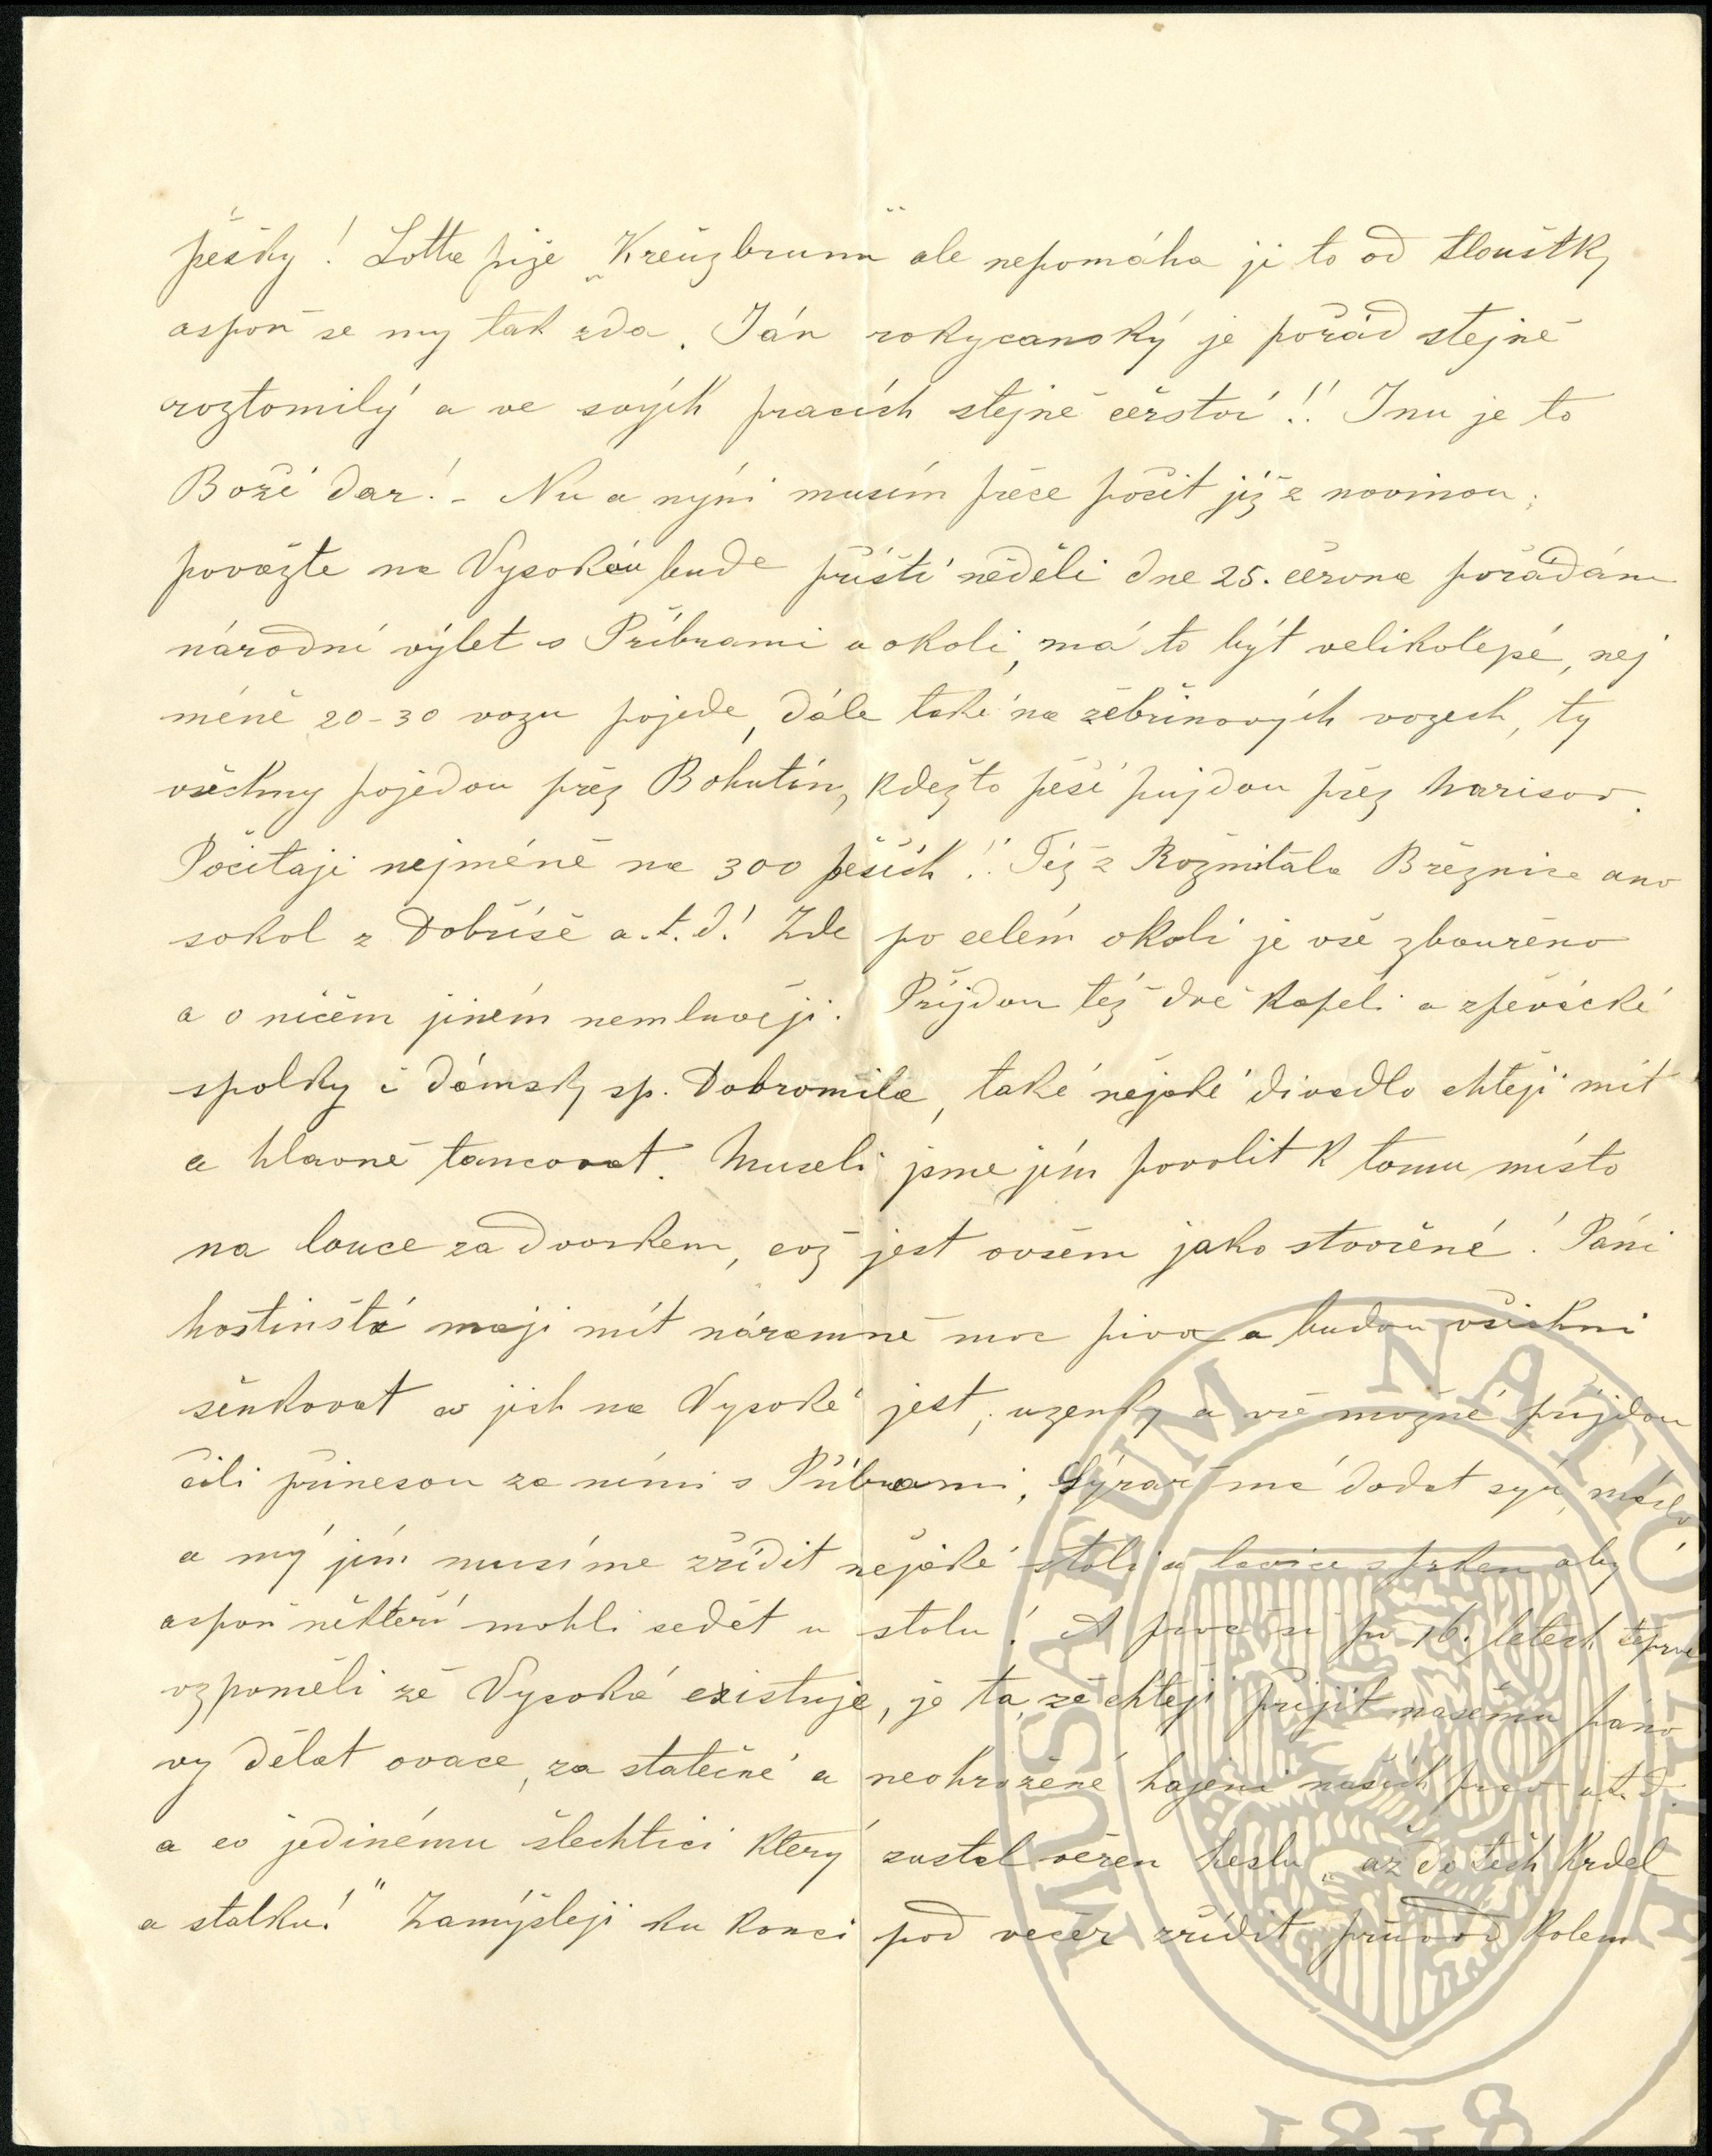 pěšky! Lotta pije „Kreüzbrunn" ale nepomáha ji to od tloušťky
aspoň se my tak zda. Ján rokycanský je pořád stejně
roztomilý a ve svých pracích stejně čerství!! Inu je to
Boží dar! - Nu a nýni musím přece počit již z novinou;
považte na Vysokáu bude příští něděli dne 25. června pořádán
národní výlet s Příbrami a okoli, má to být velikolepé, nej
méně 20-30 vozu pojede, dále také na žebřinových vozech, ty
všechny pojedou přez Bohutín, kdežto pěší pujdou přez Narisov.
Počitaji nejméně na 300 pěších!! Též z Rožmitála Březnice ano
sokol z Dobříše a.t.d! Zde po celém okolí je vše zbouřeno
a o ničem jiném nemluvěji. Příjdou též dvě kapeli a zpěvácké
spolky i dámsky sp. Dobromila, také nějaké divadlo chtěji mít
a hlavně tancovat. Museli jsme jím povolit k tomu místo
na louce za dvorkem, což jest ovšem jako stvořené! Páni
hostinští maji mít náramně moc piva a budou všichni
šenkovat co jich na Vysoké jest, uzenky a vše možné příjdou
čili přinesou za nimi s Příbrami, Sýrař má dodat sýr, máslo
a mý jím musíme zřídit nějaké stoli a lavice s prken aby
aspoň někteří mohli sedět u stolu! A proč si po 16. letech teprve
vzpoměli že Vysoká existuje, je ta, že chtěji přijít našemu páno
vy dělat ovace, za statečné a neohrožené hajeni našich prav a.t.d.
a co jedinému šlechtici který zustal věren heslu „až do těch hrdel
a statku!" Zamýšleji ku konci pod večer zřídit průvod kolem
MUSAEUM NATIONALE
1818